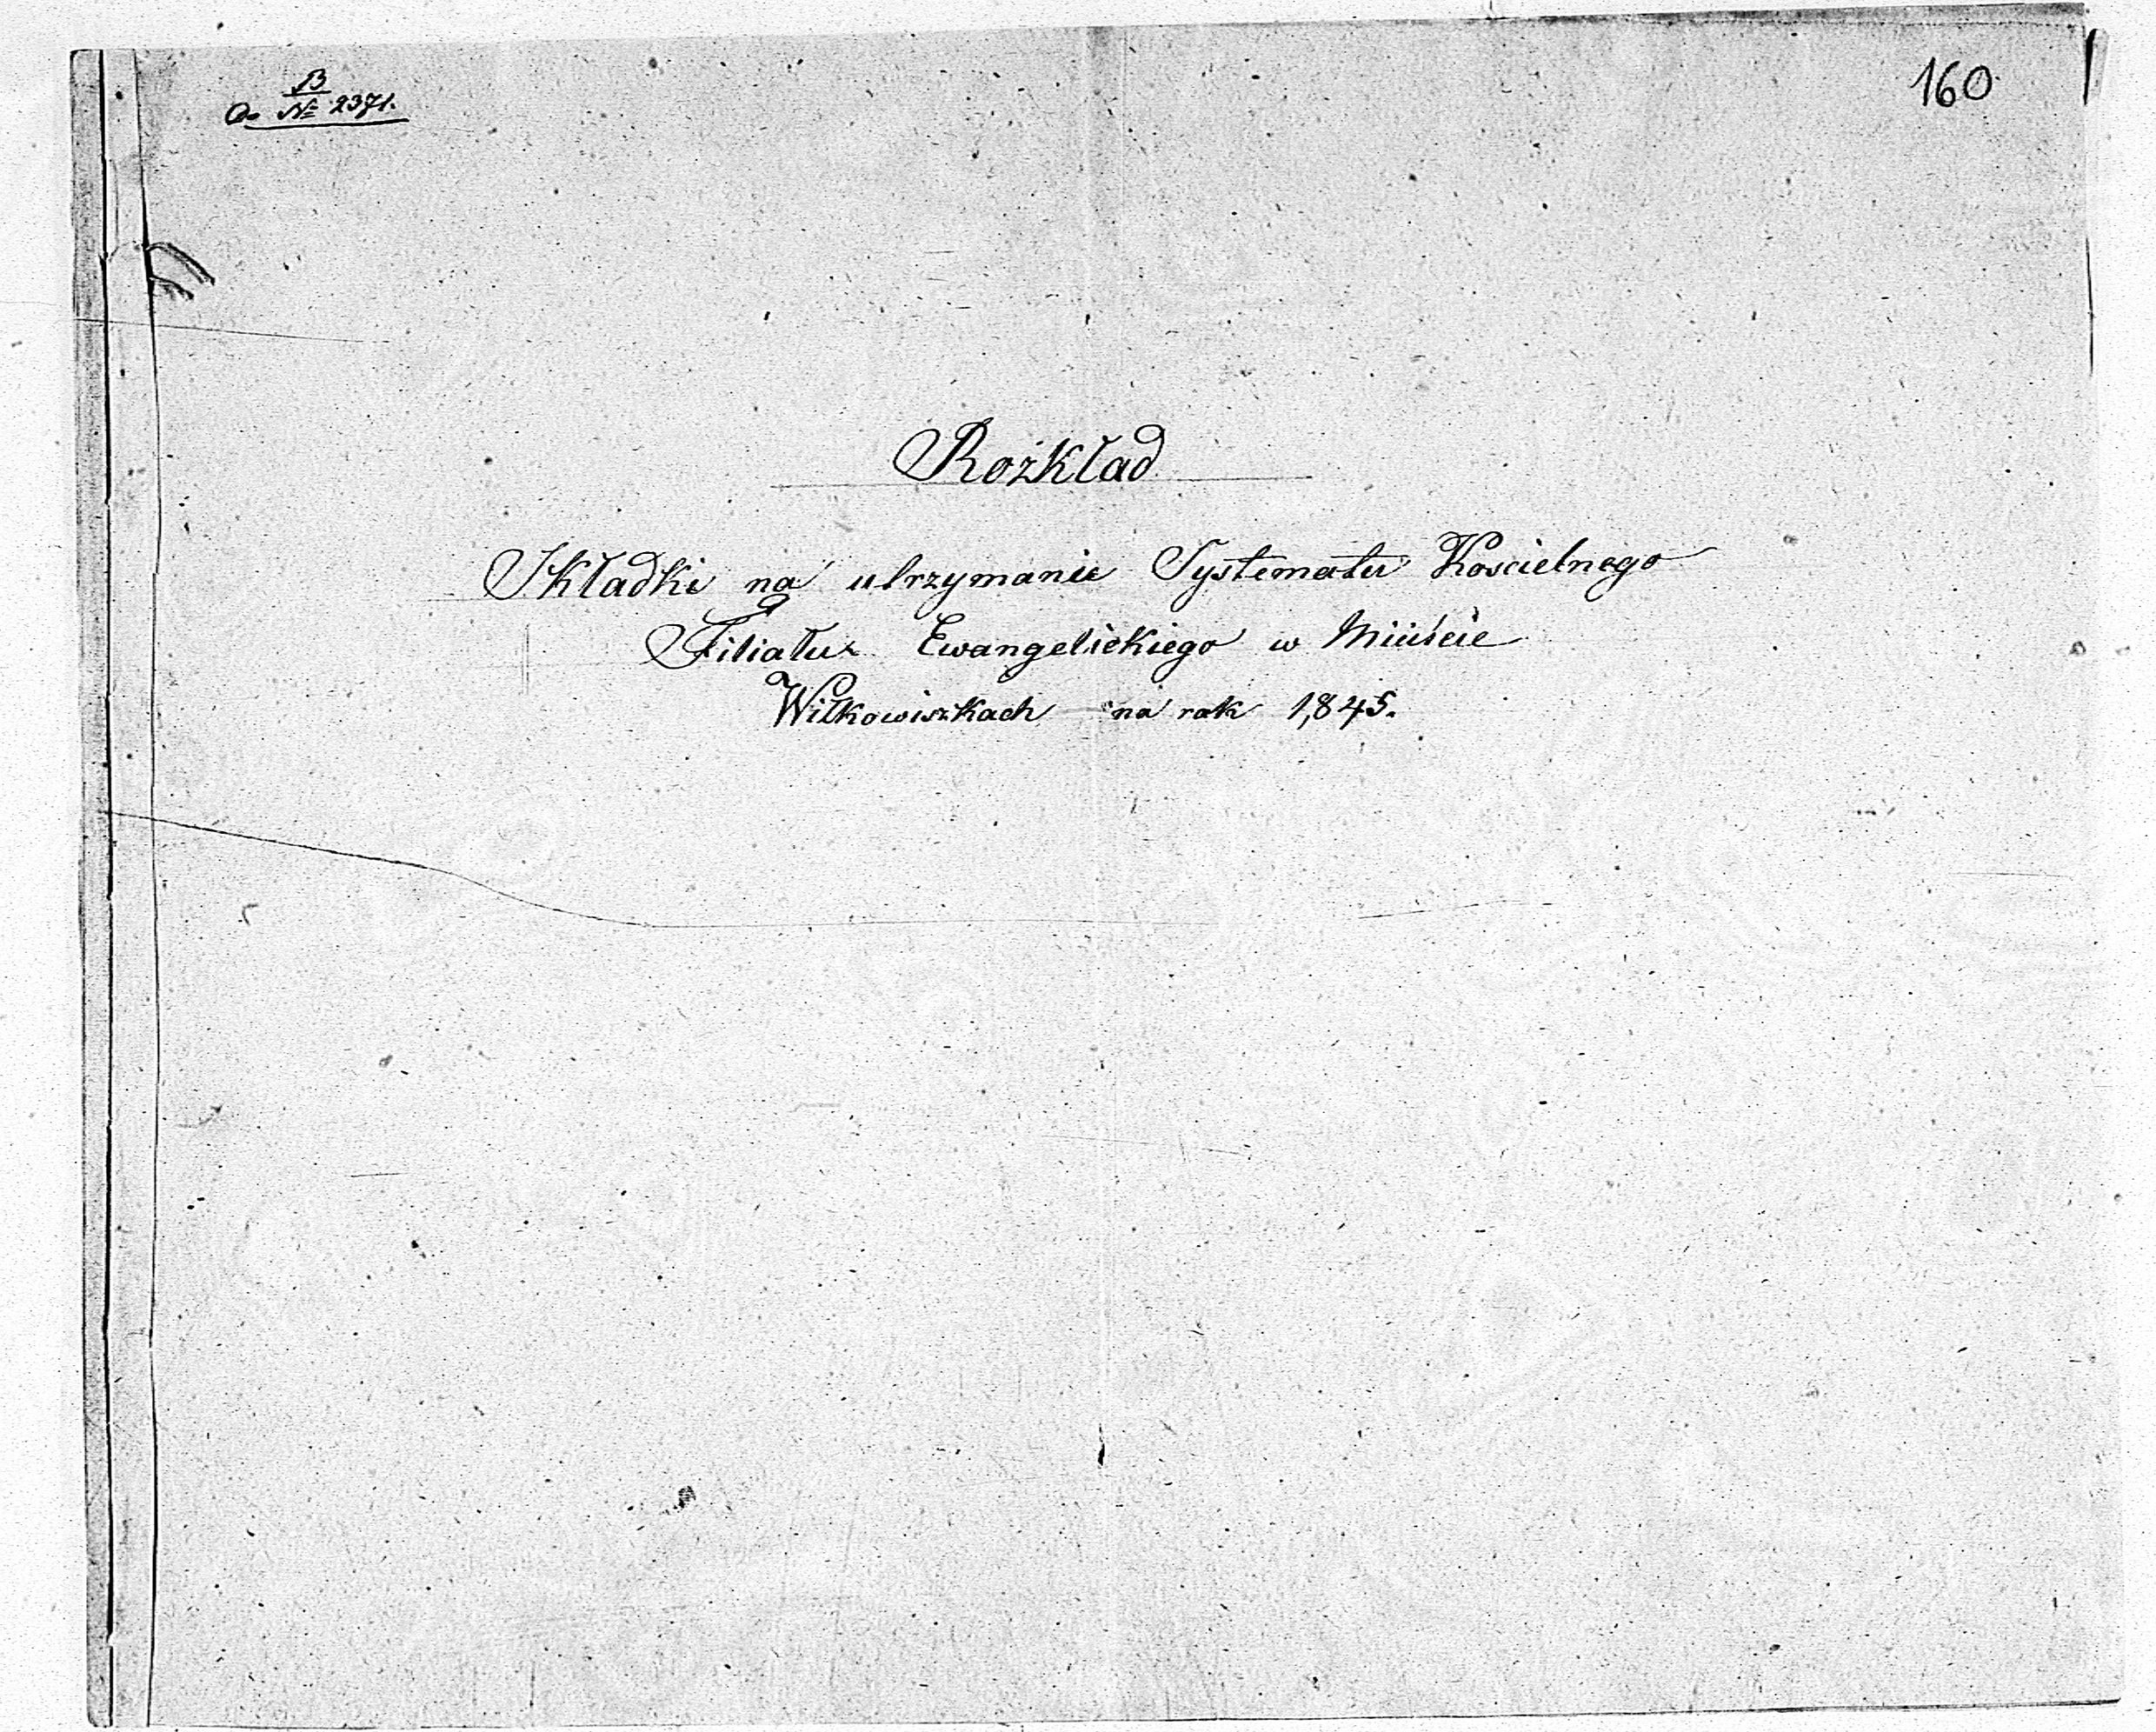 B
Do № 2371.
160
Rozkład
Składki na utrzymanie Systematu Kościelnego
Filiału Ewangelickiego w Mieście
Wiłkowiszkach na rok 1,845.